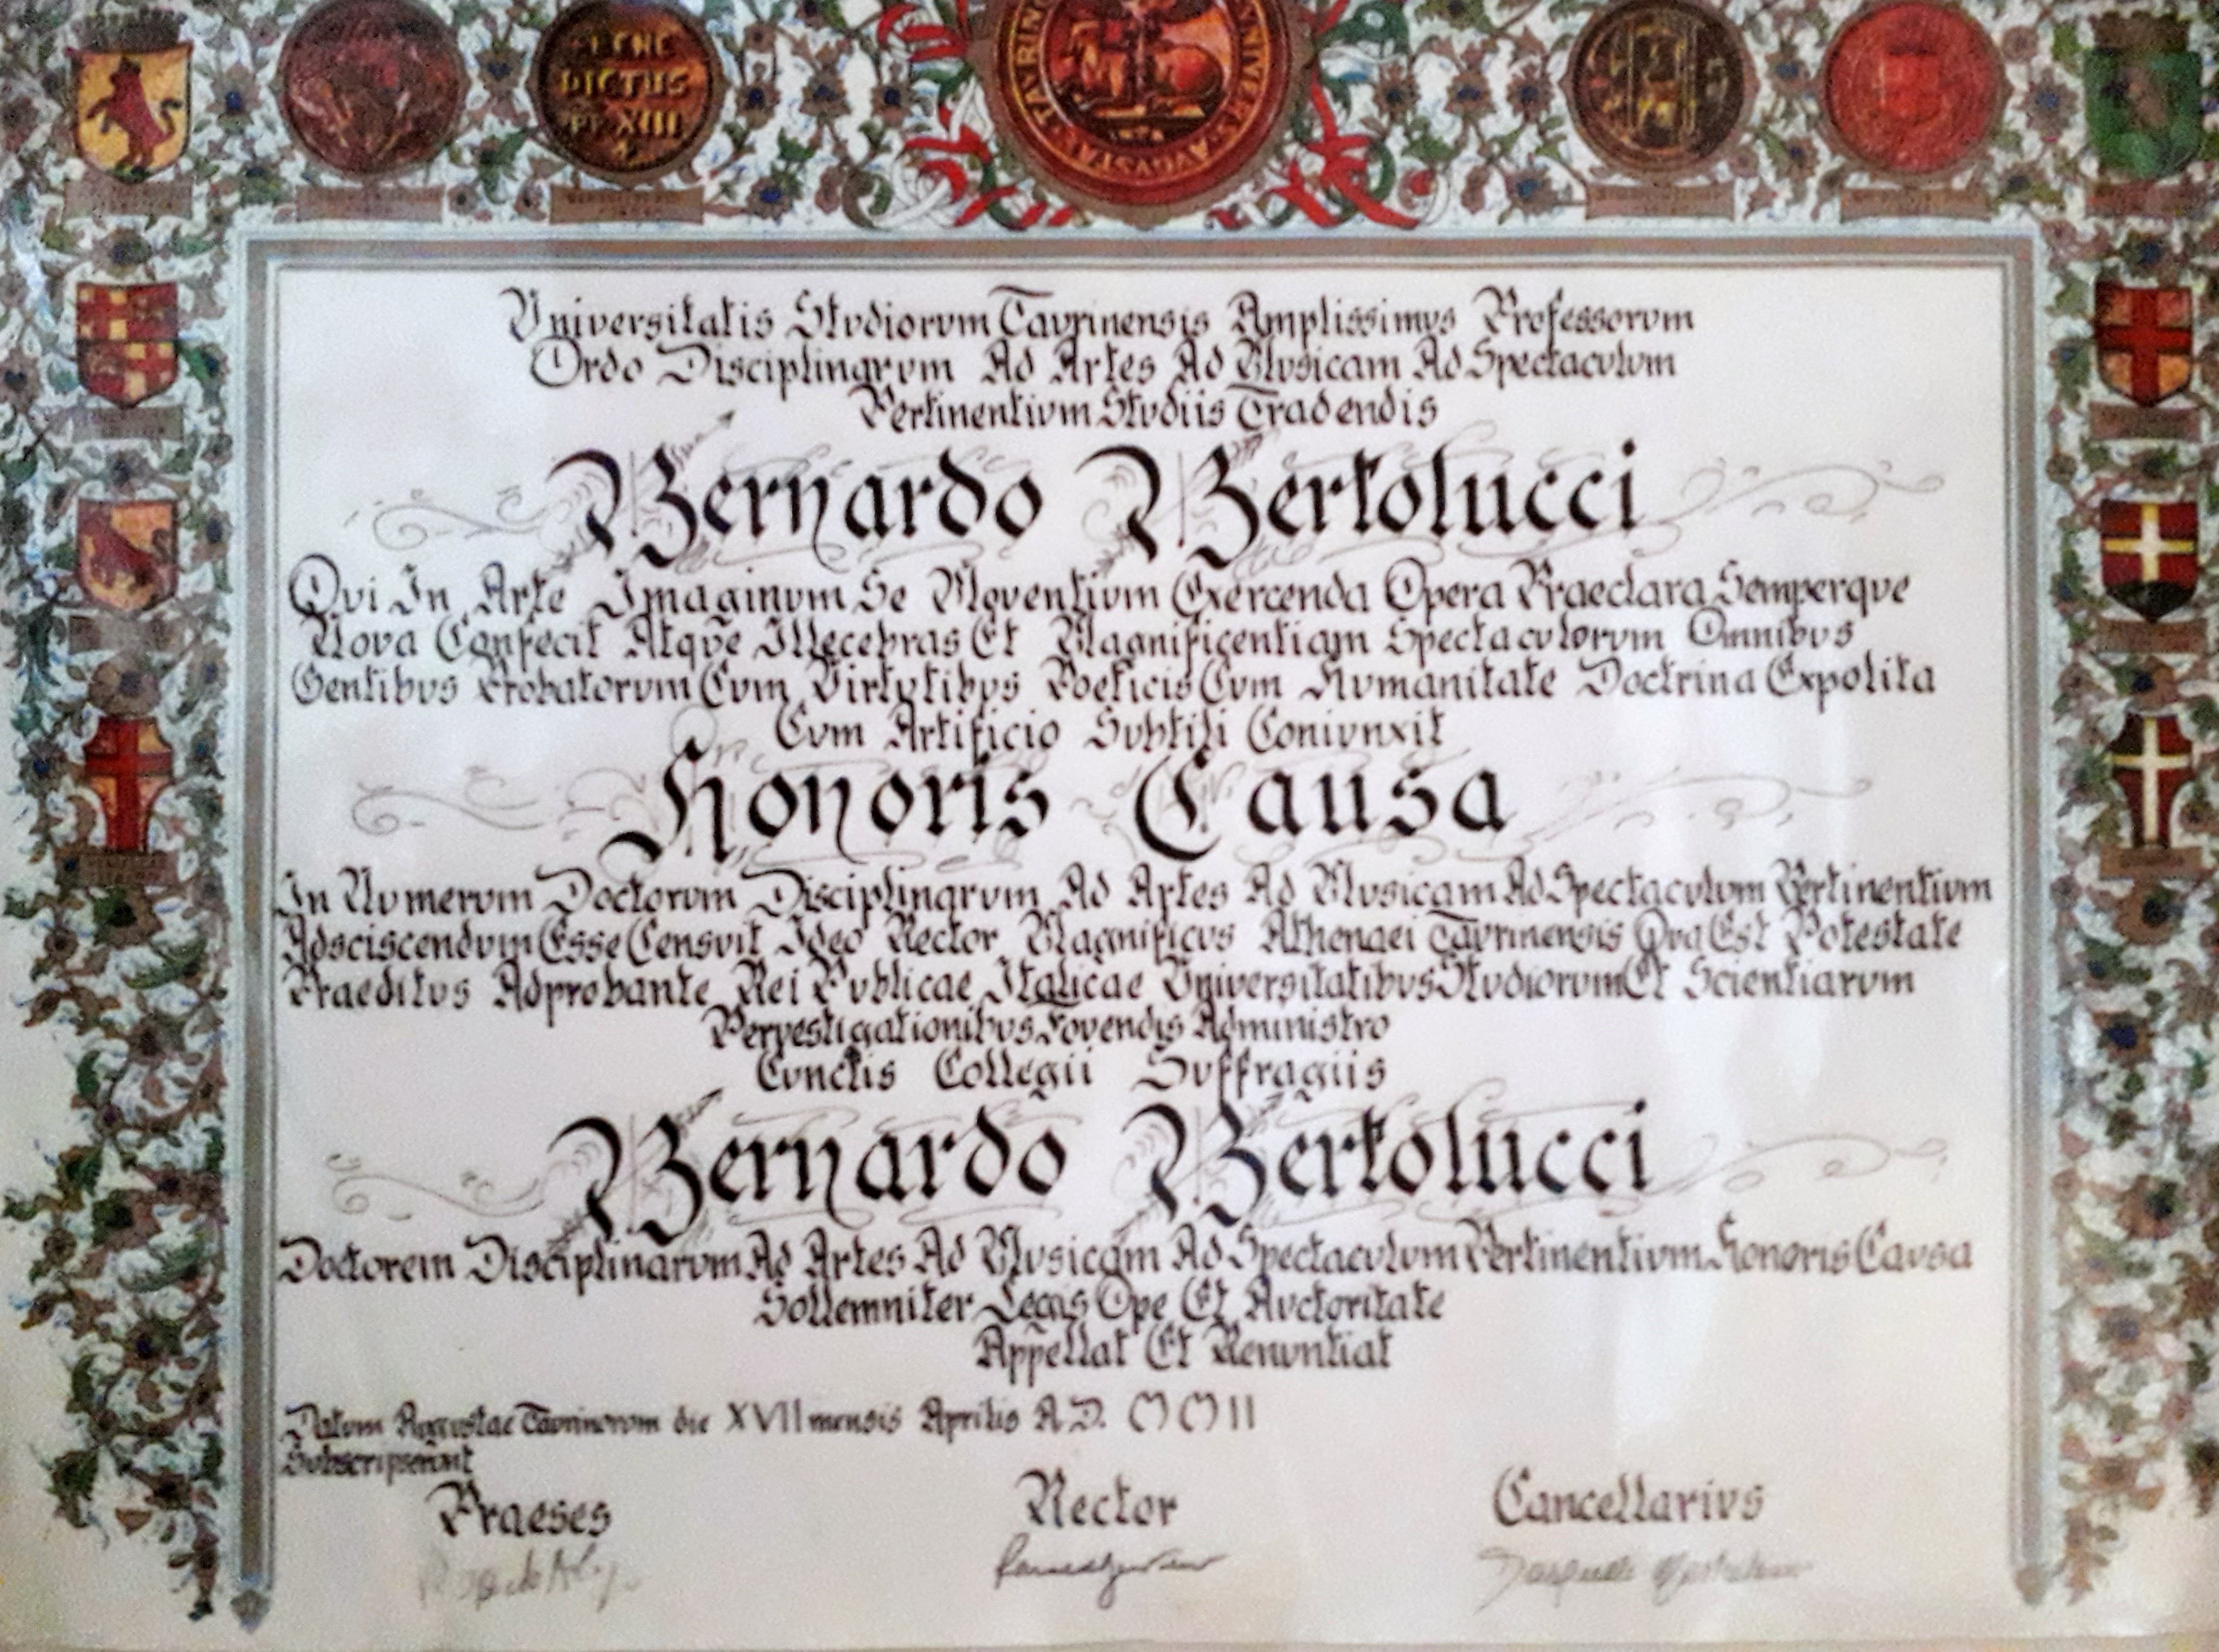 BENE
DICTUS
PP XIII
TAVRINE
VNIVERS
AVGVSTAE
Vniversitatis Stvdiorvm Tavrinensis Amplissimvs Professorvm
Ordo Disciplinarvm Ad Artes Ad Mvsicam Ad Spectacvlvm
Pertinentivm Stvdiis Tradendis
Bernardo Bertolucci
Qvi In Arte Imaginvm Se Moventivm Exercenda Opera Praeclara Semperqve
Nova Confecit Atqve Illecebras Et Magnificentiam Spectacvlorvm Omnibvs
Gentibvs Probatorvm Cvm Virtvtibvs Poeticis Cvm Hvmanitate Doctrina Expolita
Cvm Artificio Svbtili Conivnxit
Honoris Causa
In Nvmervm Doctorvm Disciplinarvm Ad Artes Ad Mvsicam Ad Spectacvlvm Pertinentivm
Adsciscendvm Esse Censvit Ideo Rector Magnificvs Athenaei Tavrinensis Qva Est Potestate
Praeditvs Adprobante Rei Pvblicae Italicae Vniversitatibvs Stvdiorvm Et Scientiarvm
Pervestigationibvs Fovendis Administro
Cvnctis Collegii Svffragiis
Bernardo Bertolucci
Doctorem Disciplinarvm Ad Artes Ad Mvsicam Ad Spectacvlvm Pertinentivm Honoris Cavsa
Sollemniter Legis Ope Et Avctoritate
Appellat Et Renvntiat
Datvm Avgvstae Tavrinorvm die XVII mensis Aprilis A.D. MMII
Svbscripservnt
Praeses Rector Cancellarivs